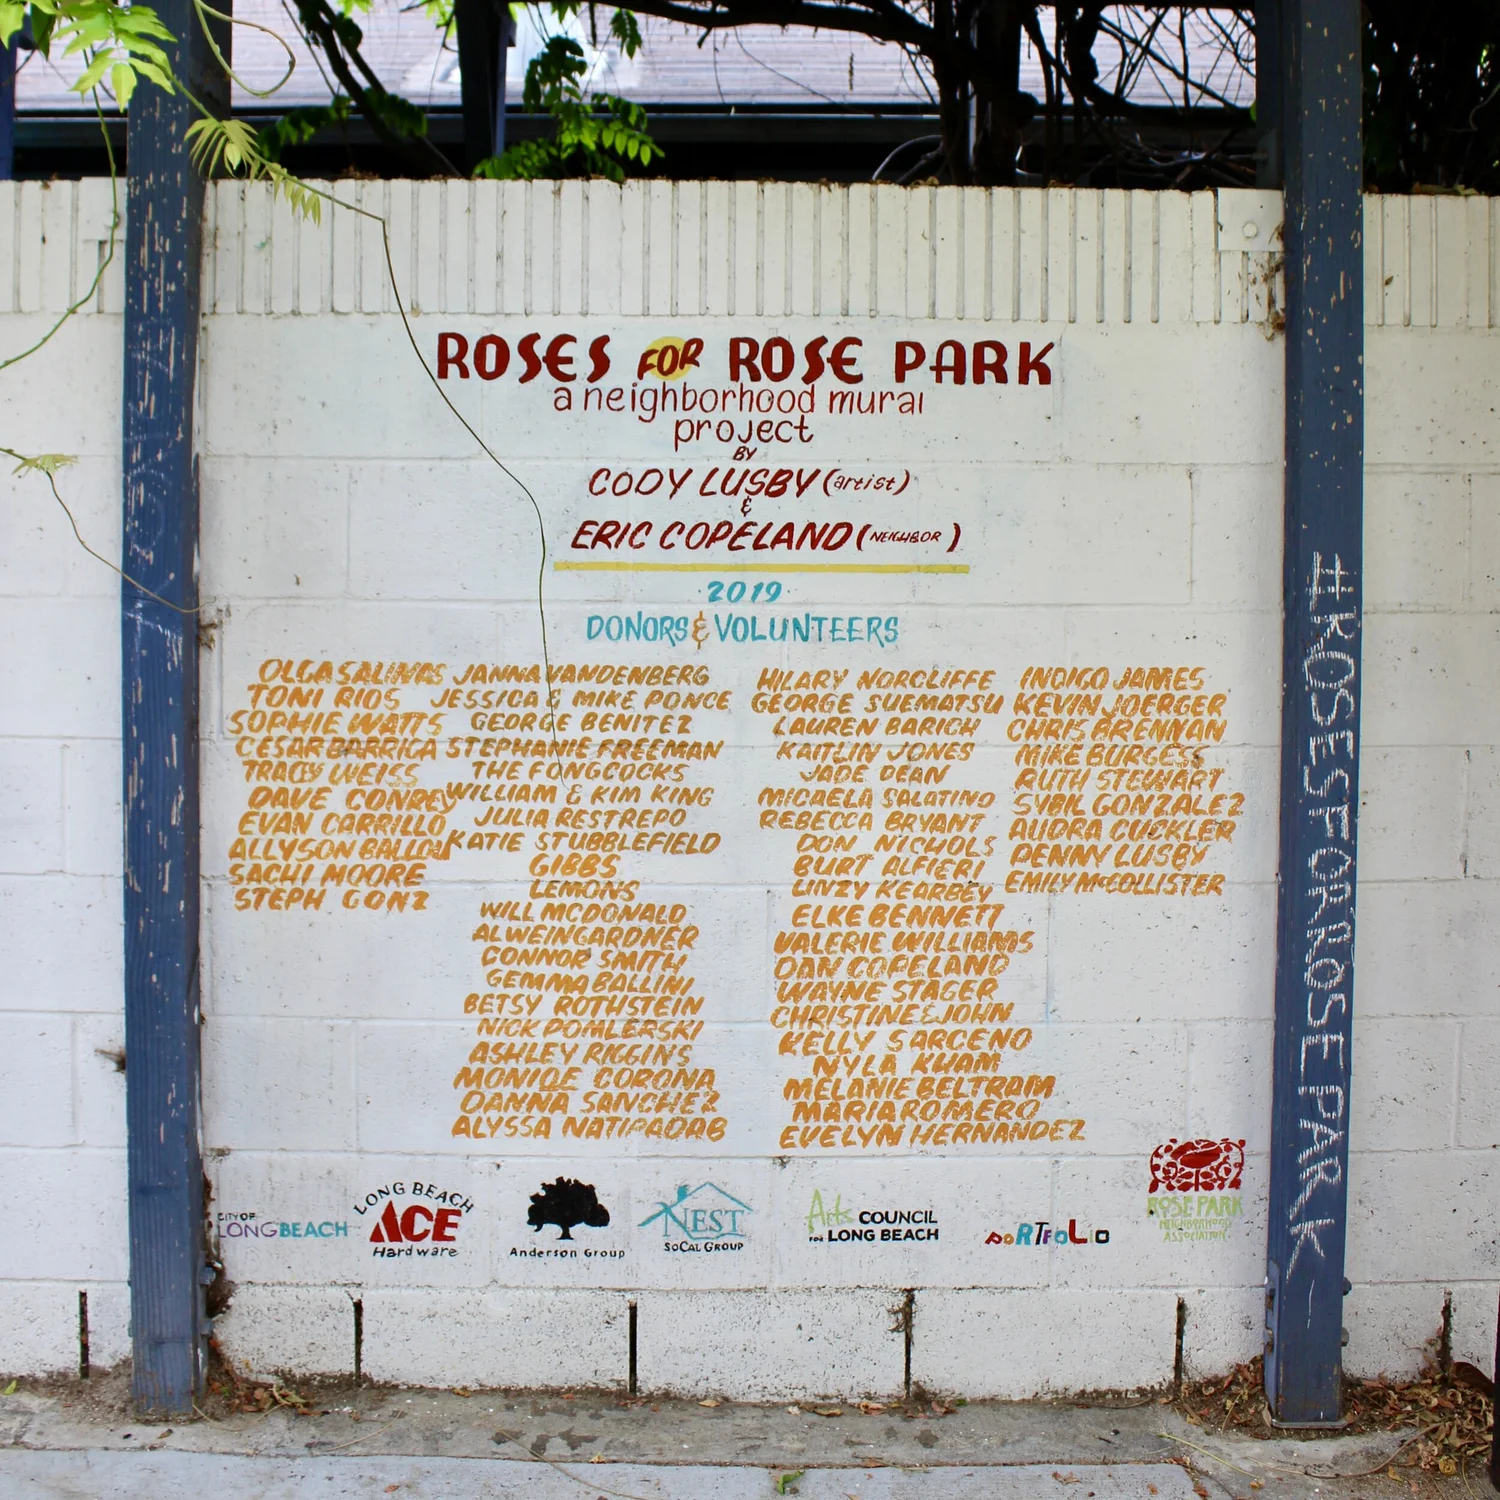 ROSES FOR ROSE PARK
a neighborhood mural
project
BY
CODY LUSBY (artist)
&
ERIC COPELAND (NEIGHBOR)
·2019·
DONORS & VOLUNTEERS
OLGA SALINAS
TONI RIOS
SOPHIE WATTS
CESAR BARRIGA
TRACY WEISS
DAVE CONREY
EVAN CARRILLO
ALLYSON BALLOU
SACHI MOORE
STEPH GONZ
JANNA VANDENBERG
JESSICA & MIKE PONCE
GEORGE BENITEZ
STEPHANIE FREEMAN
THE FONGCOCKS
WILLIAM & KIM KING
JULIA RESTREPO
KATIE STUBBLEFIELD
GIBBS
LEMONS
WILL MCDONALD
AL WEINGARDNER
CONNOR SMITH
GEMMA BALLINI
BETSY ROTHSTEIN
NICK POMLERSKI
ASHLEY RIGGINS
MONIQE CORONA
DANNA SANCHEZ
ALYSSA NATIPADAB
HILARY NORCLIFFE
GEORGE SUEMATSU
LAUREN BARICH
KAITLIN JONES
JADE DEAN
MICAELA SALATINO
REBECCA BRYANT
DON NICHOLS
BURT ALFIERI
LINZY KEARBEY
ELKE BENNETT
VALERIE WILLIAMS
DAN COPELAND
WAYNE STAGER
CHRISTINE & JOHN
KELLY SARCENO
NYLA KHAM
MELANIE BELTRAM
MARIA ROMERO
EVELYN HERNANDEZ
INDIGO JAMES
KEVIN JOERGER
CHRIS BRENNAN
MIKE BURGESS
RUTH STEWART
SYBIL GONZALEZ
AUDRA CUCKLER
PENNY LUSBY
EMILY McCOLLISTER
CITY OF
LONG BEACH
LONG BEACH
ACE
Hardware
Anderson Group
NEST
SoCAL GROUP
Arts COUNCIL
FOR LONG BEACH
PORTFOLIO
ROSE PARK
NEIGHBORHOOD
ASSOCIATION
#ROSESFORROSEPARK